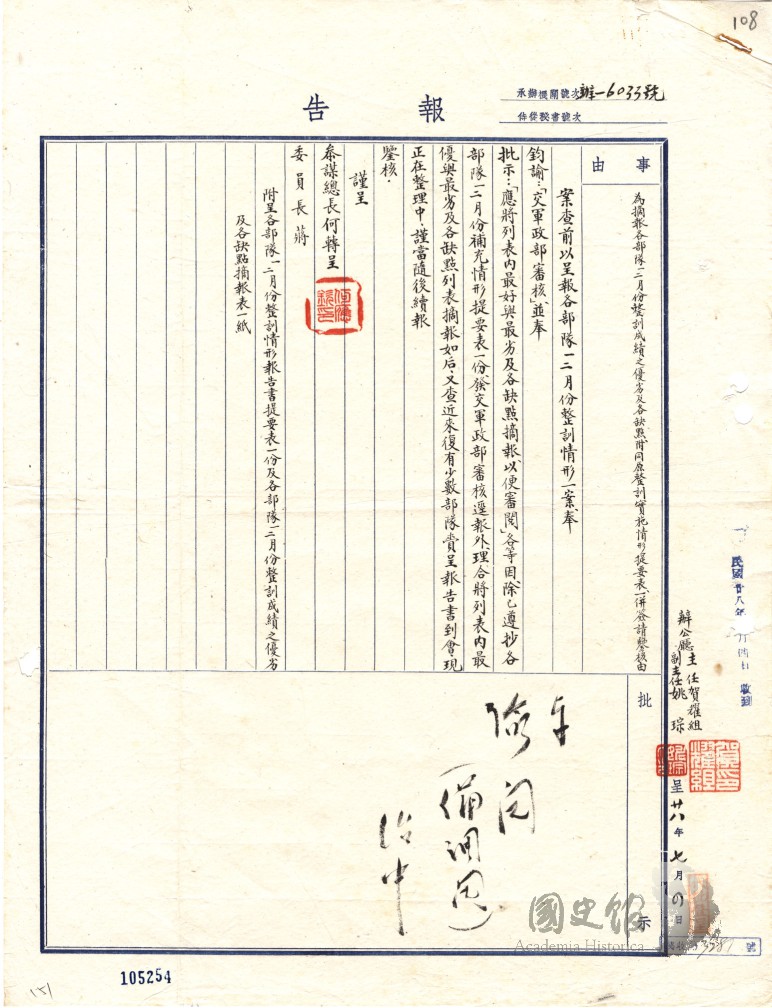 108
承辦機關號次辦一6033號
侍從秘書號次
報告
事由
為摘報各部隊一二月份整訓成績之優劣及各缺點附同原整訓實施情形提要表一併簽請鑒核由
案查前以呈報各部隊一二月份整訓情形一案奉
鈞諭：「交軍政部審核」並奉
批示：「應將列表內最好與最劣及各缺點摘報以便審閱」各等因除已遵抄各
部隊一二月份補充情形提要表一份發交軍政部審核逕報外理合將列表內最
優與最劣及各缺點列表摘報如后又查近來復有少數部隊賫呈報告書到會現
正在整理中謹當隨後續報
鑒核
謹呈
參謀總長何轉呈
委員長蔣
附呈各部隊一二月份整訓情形報告書提要表一份及各部隊一二月份整訓成績之優劣
及各缺點摘報表一紙
民國廿八年
收到
辦公廳主任賀耀組
副主任姚琮
賀耀組
呈廿八年七月
日
批示
閱
治中
國史館
Academia Historica
號
105254
151